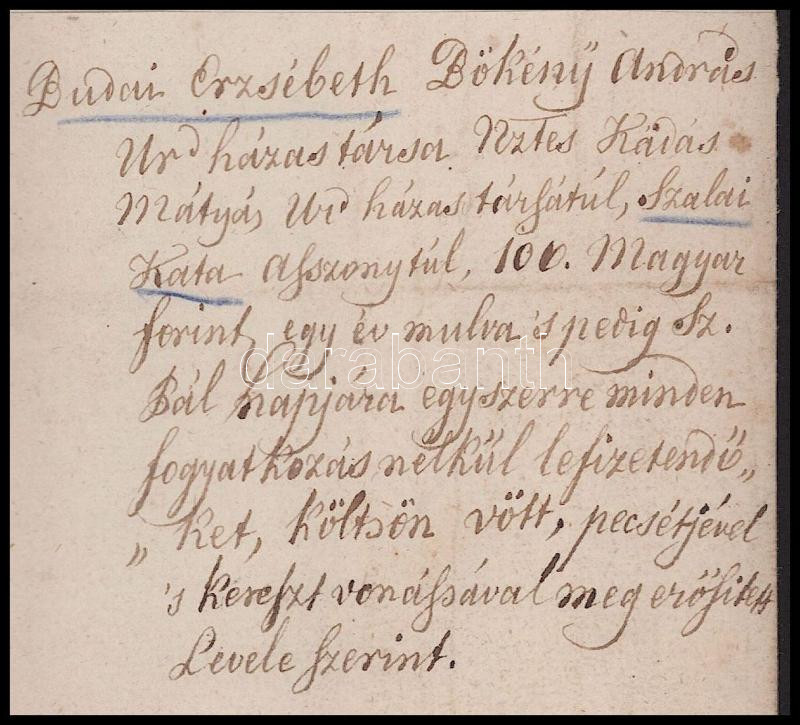 Budai Erzsébeth Bökény András
Urd házastársa Nztes Kádás
Mátyás Urd házas társátúl, Szalai
Kata Asszonytúl, 100. Magyar
forint, egy év mulva 's pedig Sz.
Pál napjára egyszerre minden
fogyatkozás nélkül lefizetendő„
„ket, költsön vött, pecsétjével
's kereszt vonássával megerősitett
Levele szerint.
darabanth